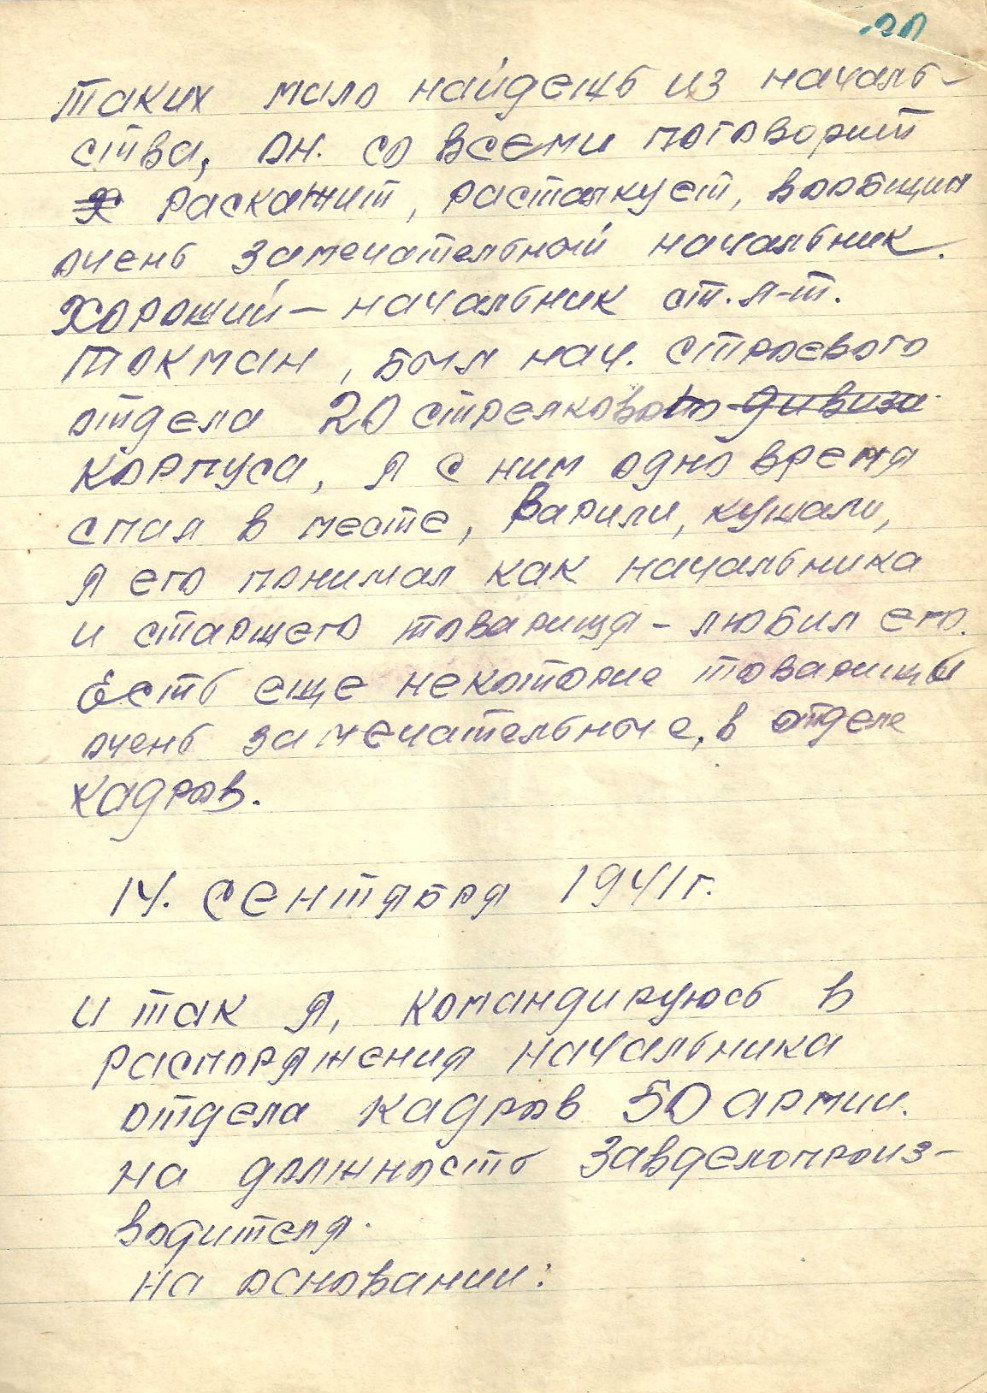 таких мало найдешь из началь-
ства, он. со всеми поговорит
я раскажит, растолкует, вообщим
очень замечательный начальник.
Хороший – начальник ст. л-т.
Токман, был нач. строевого
отдела 20 стрелкового дивизи
корпуса, я с ним одно время
спал в месте, варили, кушали,
я его понимал как начальника
и старшего товарища – любил его.
Есть еще некоторие товарищы
очень замечательные, в отделе
кадров.
14. сентября 1941 г.
и так я, командируюсь в
распоряжения начальника
отдела кадров 50 армии.
на должность завделопроиз-
водителя.
на основании: